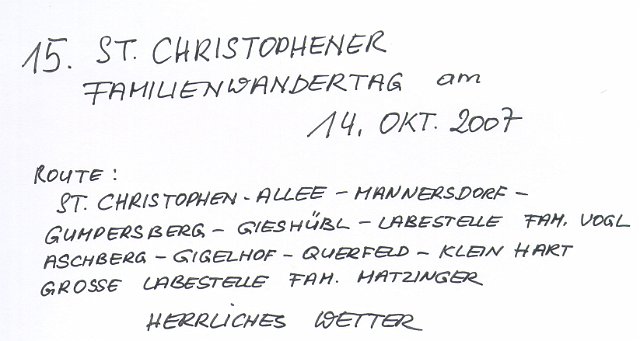 15. ST. CHRISTOPHENER
FAMILIENWANDERTAG am
14. OKT. 2007
ROUTE:
ST. CHRISTOPHEN - ALLEE - MANNERSDORF -
GUMPERSBERG - GIESHÜBL - LABESTELLE FAM. VOGL
ASCHBERG - GIGELHOF - QUERFELD - KLEIN HART
GROSSE LABESTELLE FAM. MATZINGER
HERRLICHES WETTER